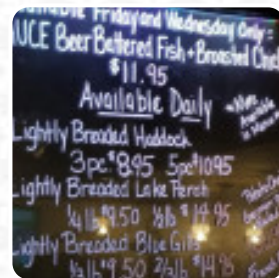 Friday and Wednesday Only -
UCE Beer Battered Fish + Broasted Chic
$11.95
Available Daily
Lightly Breaded Haddock
3pc $8.95 5pc $10.95
Lightly Breaded Lake Perch
1/4 lb $9.50 1/2 lb $14.95
Lightly Breaded Blue Gills
1/4 lb $9.50 1/2 lb $14.95